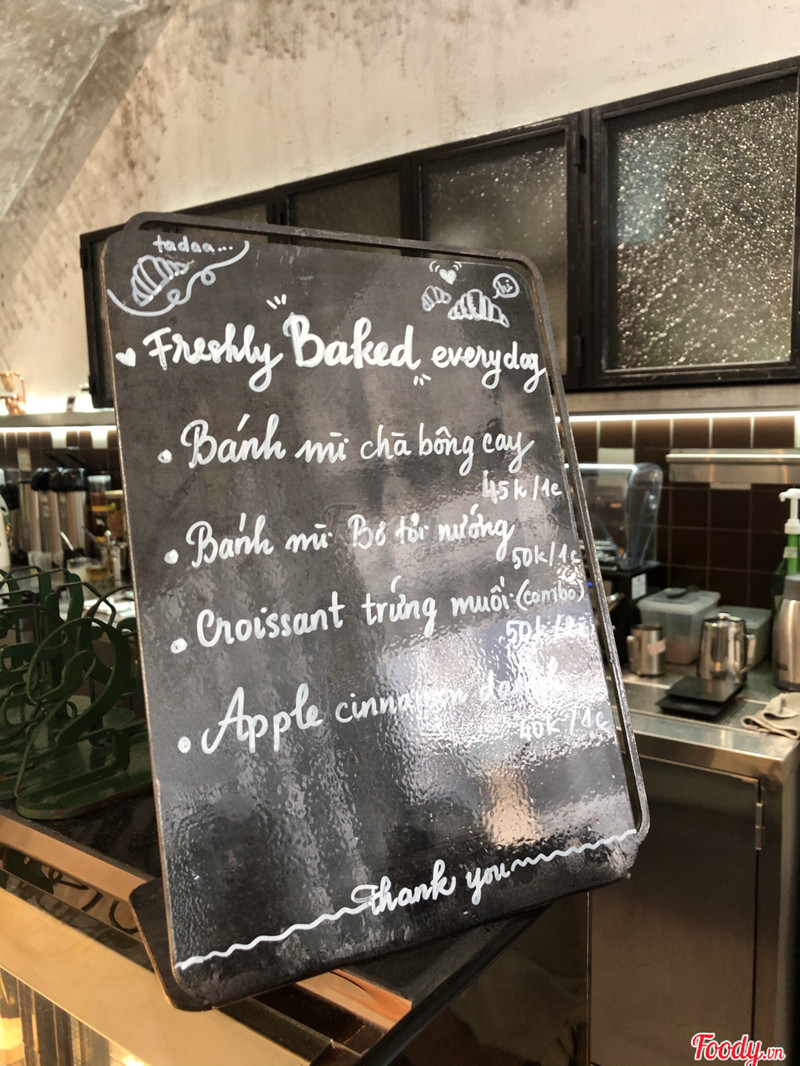 tadaa...
hi
Freshly Baked everyday
Bánh mì chà bông cay
45k/1c
Bánh mì Bơ tỏi nướng
50k/1c
Croissant trứng muối (combo)
50k/
Apple cinnamon
40k/1c
thank you
Foody.vn